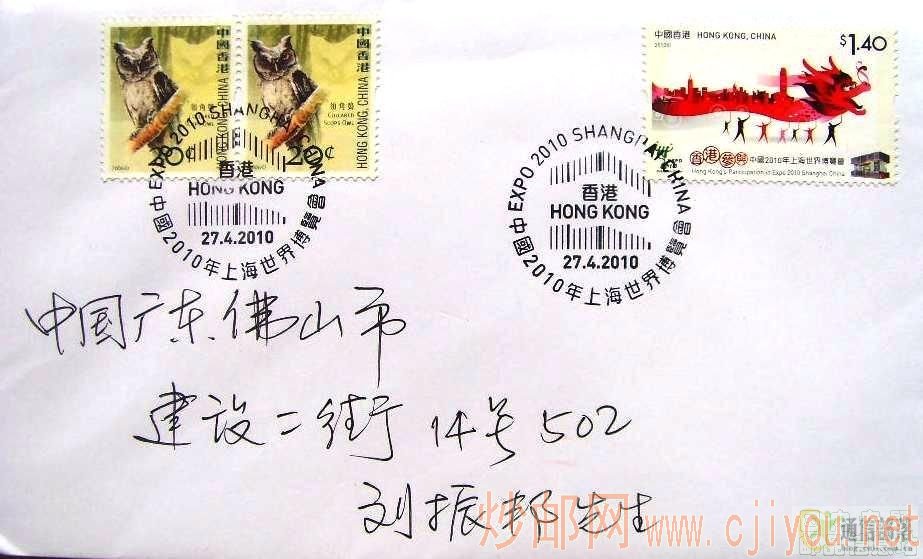 中國香港
HONG KONG, CHINA
領角鴞
COLLARED
SCOPS OWL
中國香港
HONG KONG, CHINA
領角鴞
COLLARED
SCOPS OWL
20¢
中國香港 HONG KONG, CHINA
$1.40
香港參與中國2010年上海世界博覽會
Hong Kong's Participation in Expo 2010 Shanghai, China
EXPO 2010 SHANGHAI CHINA
香港
HONG KONG
27.4.2010
中國2010年上海世界博覽會
EXPO 2010 SHANGHAI CHINA
香港
HONG KONG
27.4.2010
中國2010年上海世界博覽會
中国广东佛山市
建设二街14号502
刘振邦先生
炒邮网www.cjiyou.net
通信部落